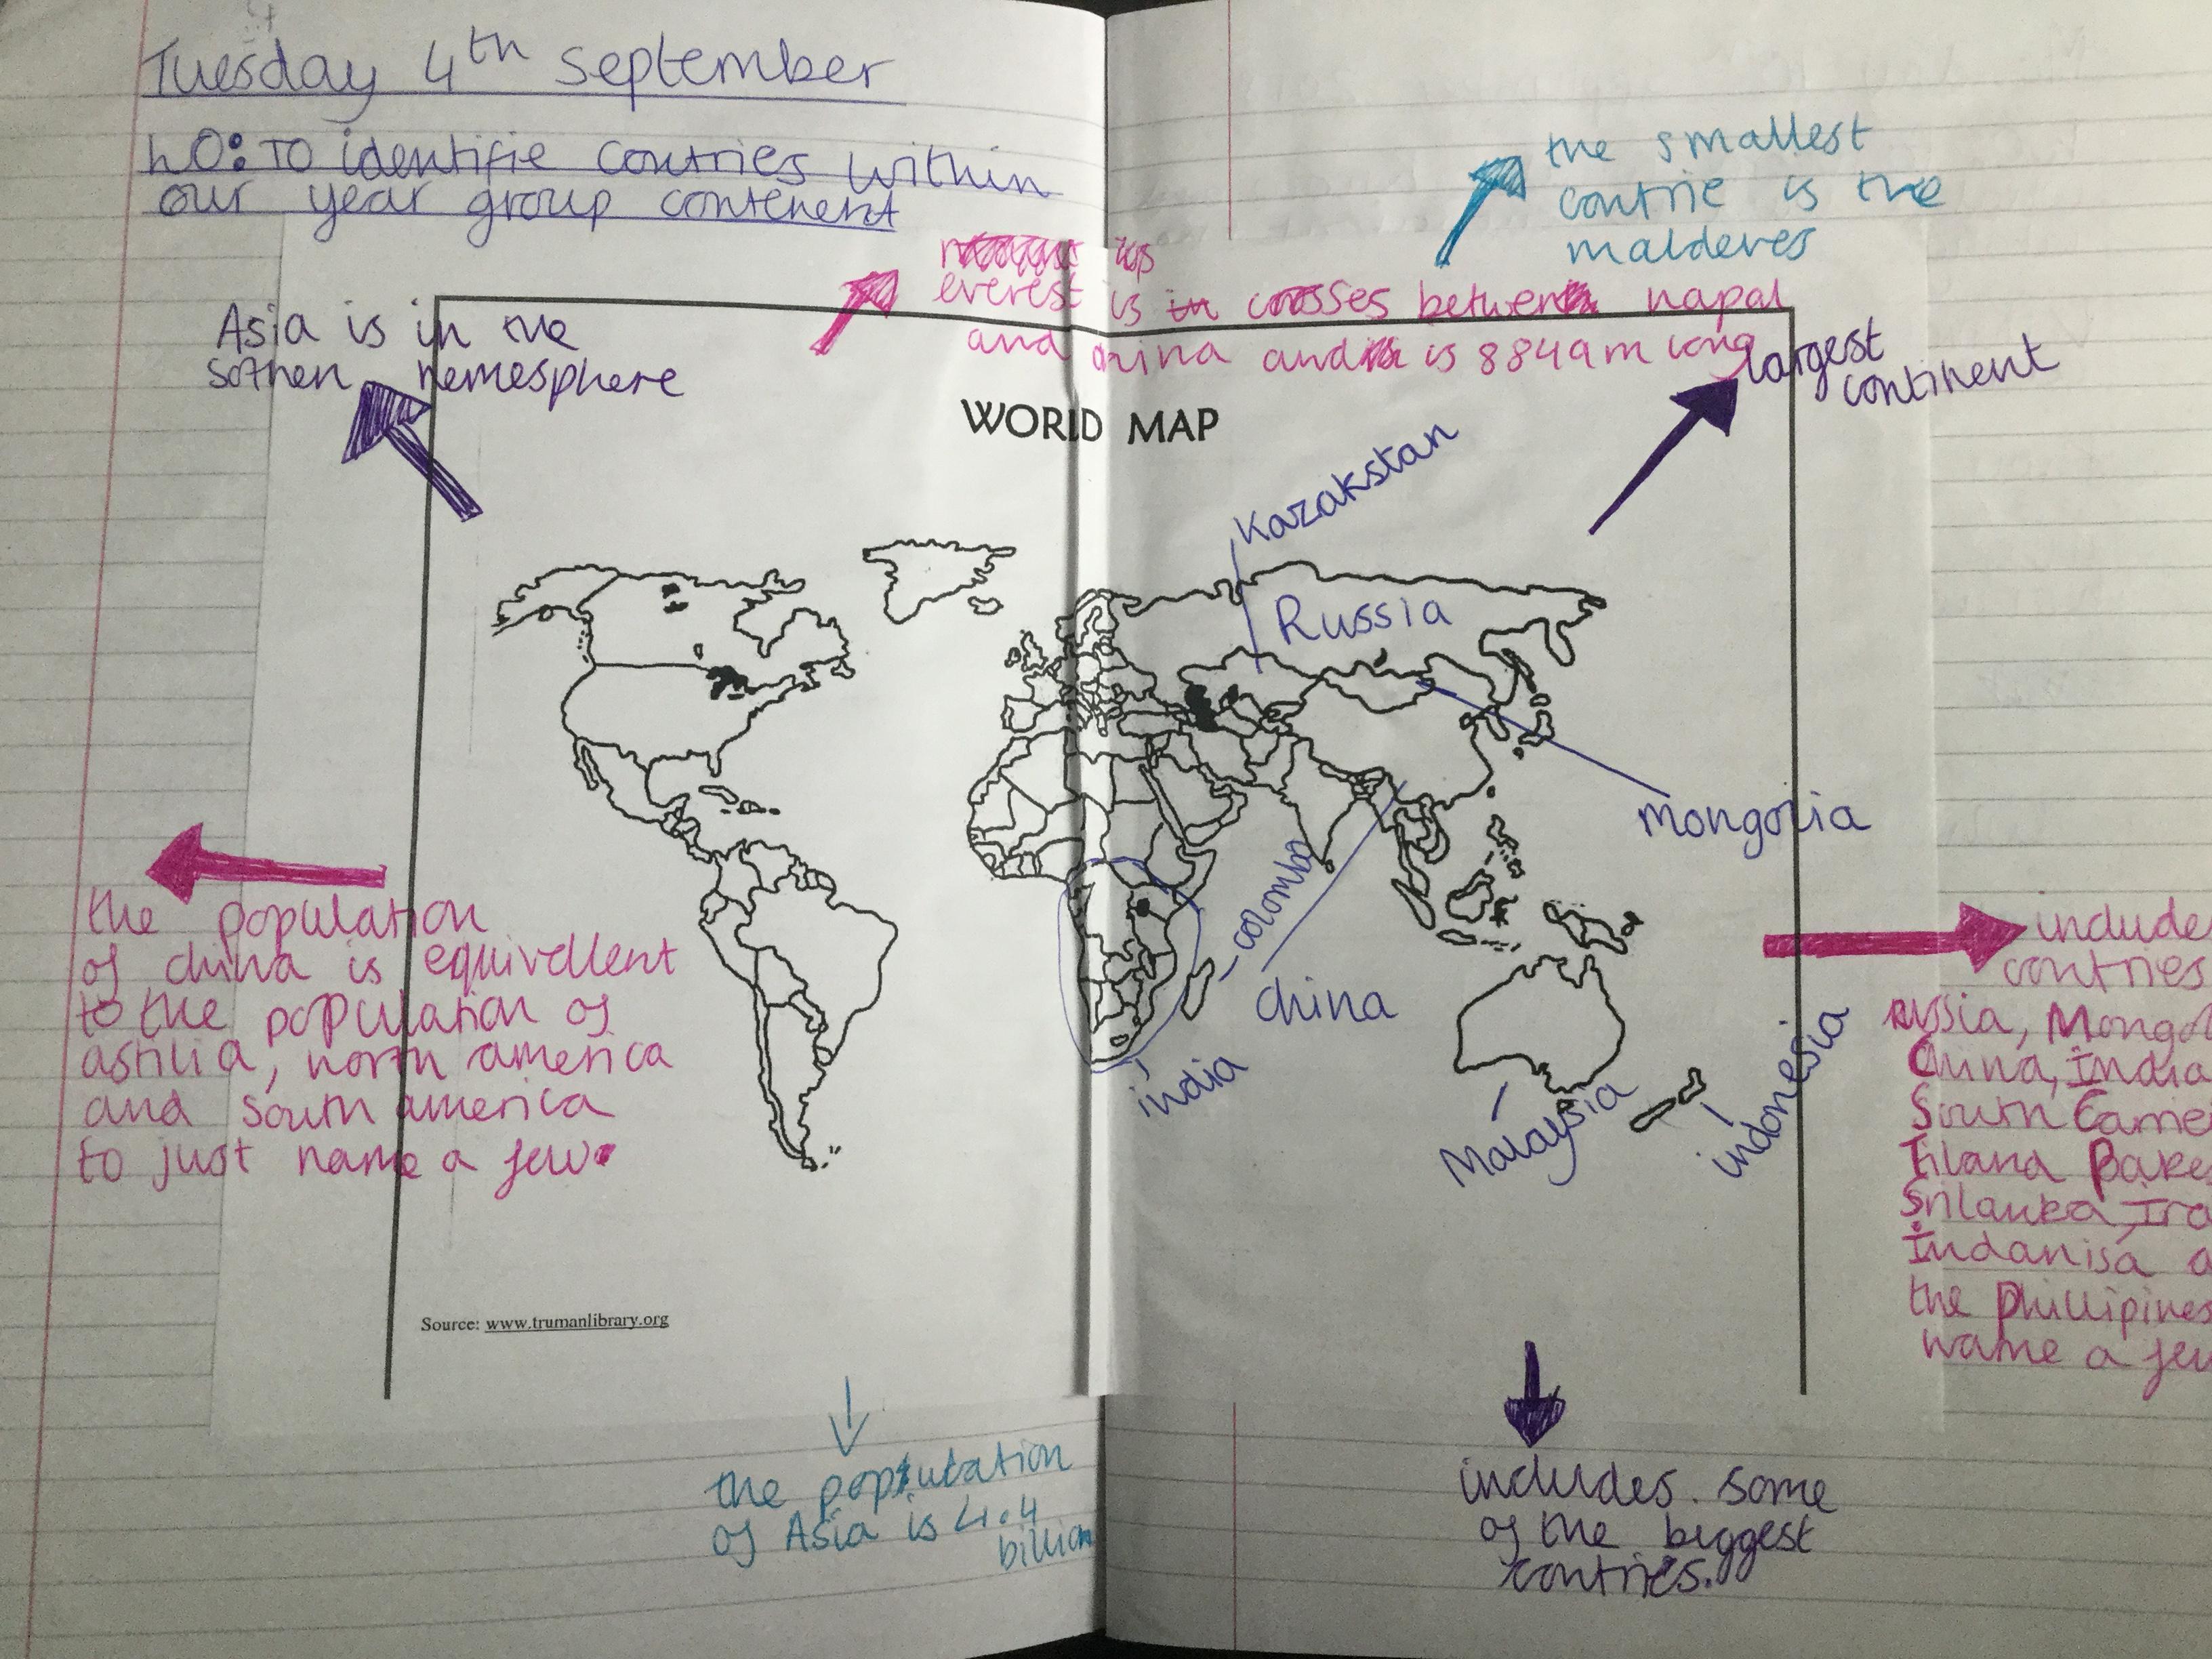 Tuesday 4th september
LO: To identifie contries within
our year group contenent
the smallest
contrie is the
malderes
everest is in crosses between napal
and china and is 8849m long
Asia is in the
sothen hemesphere
largest
continent
WORLD MAP
Kazakstan
Russia
Mongolia
colombo
china
india
Malaysia
indonesia
the population
of china is equivellent
to the population of
astilia, north america
and south america
to just name a few.
include
contries
russia, Mongol
China, India
South
Srilanka, Ira
Indanisa a
the Phillipines
name a few
Source: www.trumanlibrary.org
the poplutation
of Asia is 4.4
billion
includes. some
of the biggest
contries.